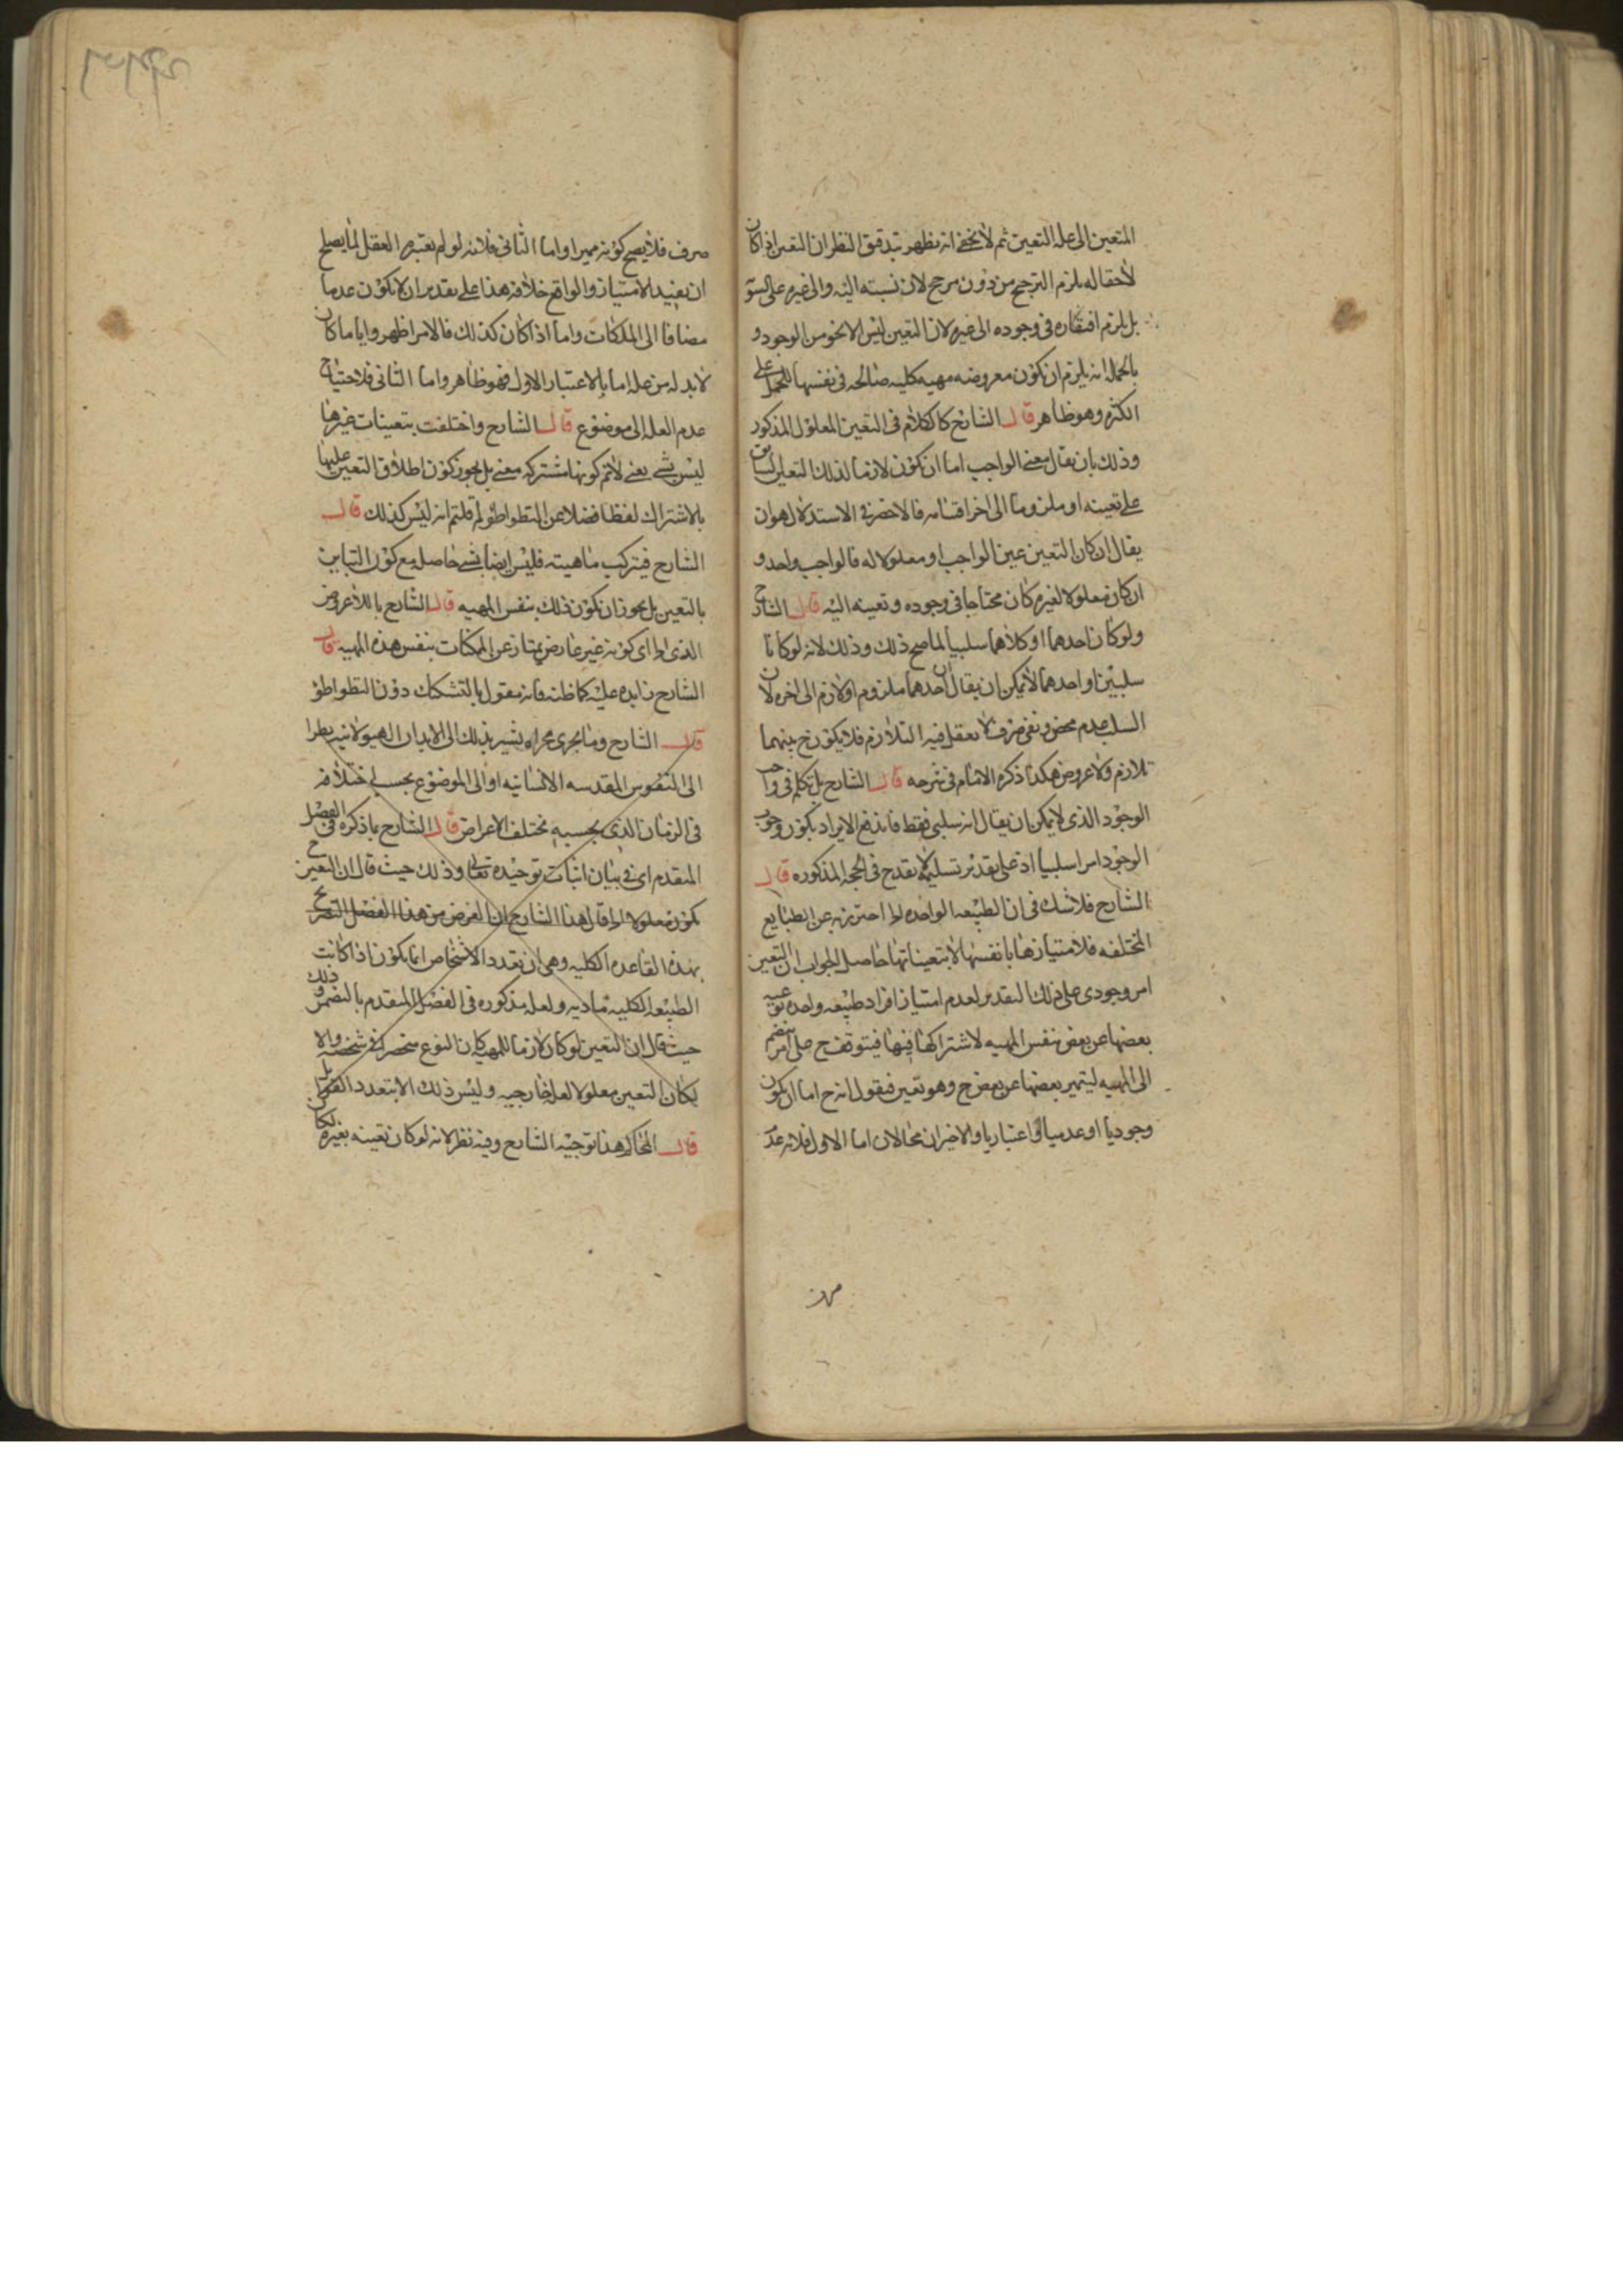 المتعين الى علة التعين ثم لا يخفى انه يظهر بتدقيق النظر ان التعين اذا كان
لاحقا له يلزم الترجيح من دون مرجح لان نسبته اليه والى غيره على السو
بل يلزم افتقاره فى وجوده الى غيره لان التعين ليس الا نحو من الوجود و
بالجملة انه يلزم ان يكون معروضه مهية كلية صالحة فى نفسها للحمل على
الكثرة وهو ظاهر قال الشارح كالكلام فى التعين المعلول المذكور
وذلك بان يقال معنى الواجب اما ان يكون لازما لذلك التعين السابق
على تعينه او ملزوما الى اخر اقسامه فالاخصر فى الاستدلال هو ان
يقال ان كان التعين عين الواجب او معلولا له فالواجب واحد و
ان كان معلولا لغيره كان محتاجا فى وجوده وتعينه اليه قال الشارح
ولو كان احدهما او كلاهما سلبيا لما صح ذلك وذلك لانه لو كانا
سلبيين او احدهما لا يمكن ان يقال ان احدهما ملزوم او لازم الى اخره لان
السلب عدم محض ونفى صرف لا يعقل فيه التلازم فلا يكون ح بينهما
تلازم ولا عروض هكذا ذكره الامام فى شرحه قال الشارح بل تكلم فى واجب
الوجود الذى لا يمكن ان يقال انه سلبى فقط فاندفع الايراد بكون وجوب
الوجود امرا سلبيا اذ على تقدير تسليمه لا يقدح فى الحجة المذكورة قال
الشارح فلا شك فى ان الطبيعة الواحدة احترز به عن الطبايع
المختلفة فلامتيازها بانفسها لا بتعيناتها حاصل الجواب ان التعين
امر وجودى على ذلك التقدير لعدم امتياز افراد طبيعة واحدة نوعية
بعضها عن بعض بنفس المهية لاشتراكها فيها فيتوقف ح على امر ينضم
الى المهية ليتميز بعضها عن بعض ح وهو تعين فنقول انه ح اما ان يكون
وجوديا او عدميا او اعتباريا والاخيران محالان اما الاول فلانه عدم
صرف فلا يصح كونه مميزا واما الثانى فلانه لو لم يعتبره العقل لما يصلح
ان يفيد الامتياز والواقع خلافه هذا على تقدير ان لا يكون عدما
مضافا الى الملكات واما اذا كان كذلك فالامر اظهر وايا ما كان
لا بد له من علة اما بالاعتبار الاول فهو ظاهر واما الثانى فلاحتياج
عدم العلة الى موضوع قال الشارح واختلفت بتعينات غيرها
ليس بشى يعنى لانم كونها مشتركة معنى بل يجوز كون اطلاق التعين عليها
بالاشتراك لفظا فضلا عن التطواطؤ لم قلتم انه ليس كذلك قال
الشارح فيتركب ماهيته فليس ايضا بشى حاصل مع كون التباين
بالتعين بل يجوز ان يكون ذلك بنفس المهية قال الشارح باللاعروض
الذى اى كونه غير عارض يمتاز عن الممكنات بنفس هذه المهية قال
الشارح زايدة عليه كما ظنه فانه مقول بالتشكيك دون التطواطؤ
قال الشارح وما يجرى مجراه يشير بذلك الى الابدان الهيولانية نظرا
الى النفوس المقدسة الانسانية او الى الموضوع بحسب اختلافه
فى الزمان الذى بحسبه مختلف الاعراض قال الشارح بما ذكره فى الفصل
المتقدم اى فى بيان اثبات توحيده تعالى وذلك حيث قال ان التعين ح
يكون معلولا قال هذا الشارح ان الغرض من هذا الفصل التصريح
بهذه القاعدة الكلية وهى ان تعدد الاشخاص انما يكون اذا كانت
الطبيعة الكلية مادية ولعله مذكورة فى الفصل المتقدم بالتضمن وذلك
حيث قال ان التعين لو كان لازما للمهية كان النوع منحصرا فى شخصه والا
لكان التعين معلولا لعلة خارجية وليس ذلك الا بتعدد القوابل
قال المحاكم هذا توجيه الشارح وفيه نظر لانه لو كان تعينه بغيره لكان